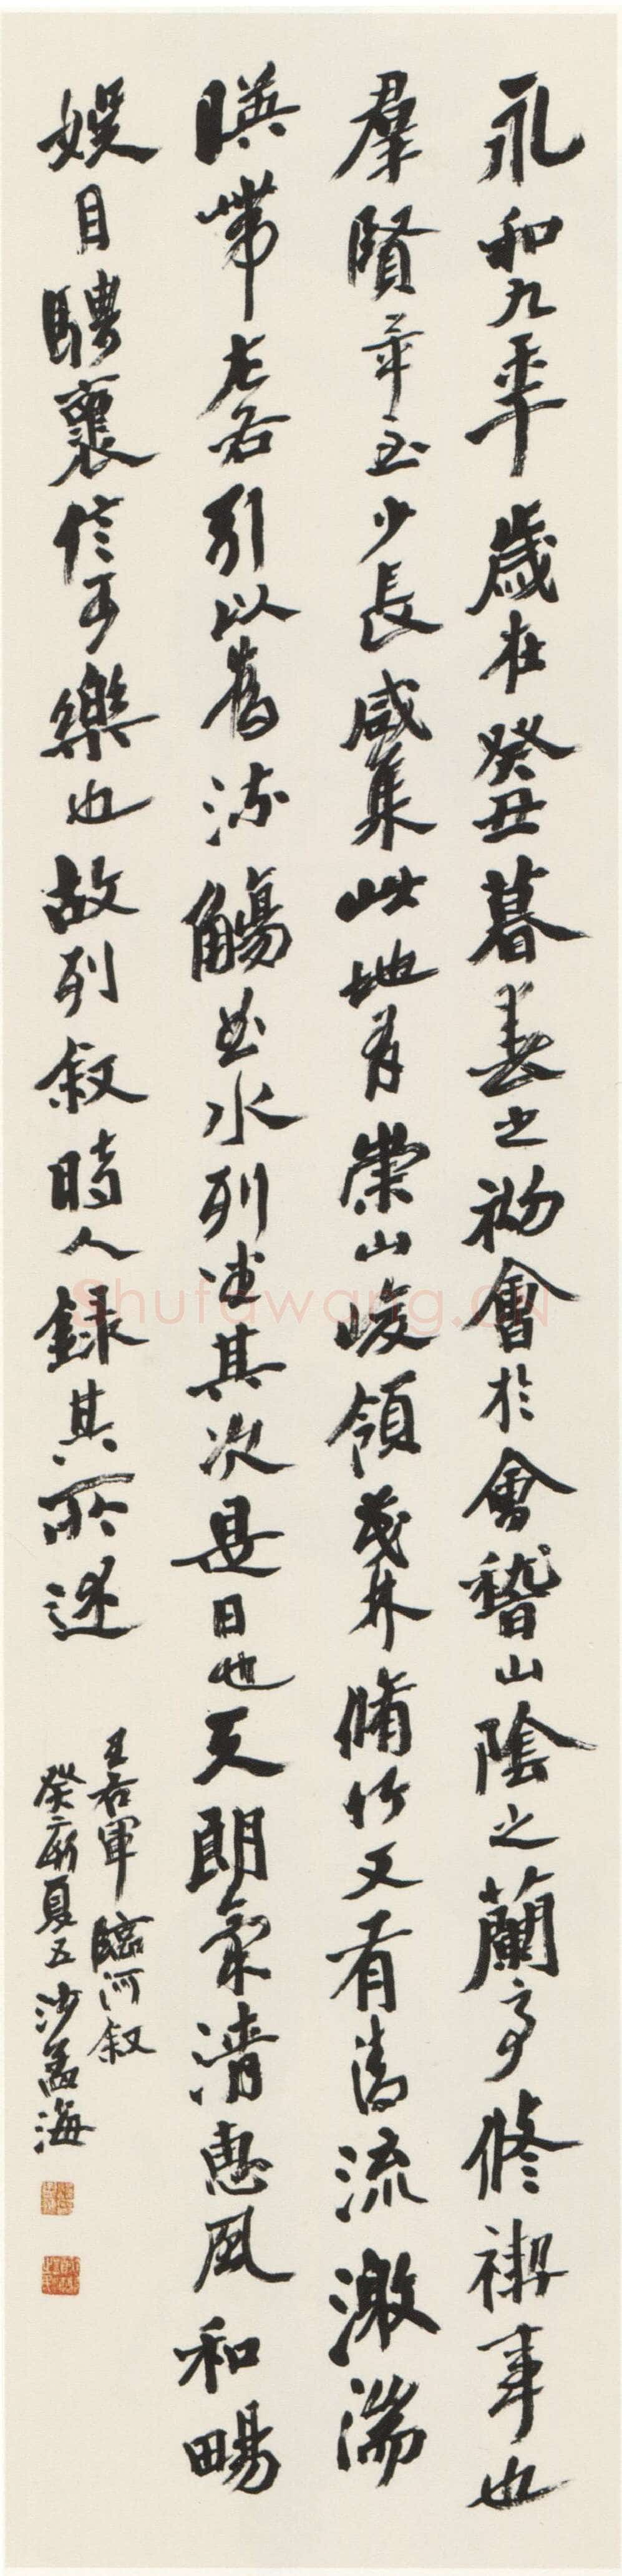 永和九年歲在癸丑暮春之初會於會稽山陰之蘭亭修禊事也
羣賢畢至少長咸集此地有崇山峻領茂林脩竹又有清流激湍
暎帶左右引以為流觴曲水列坐其次是日也天朗氣清惠風和暢
娛目騁襄信可樂也故列敘時人錄其所述
王右軍臨河敘
癸亥夏五沙孟海
Shufawang.CN